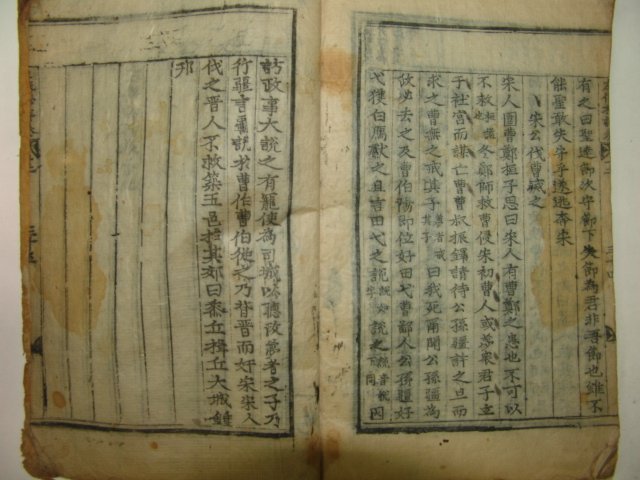 有之曰聖達節次守節下失節為君非吾節也雖不
能聖敢失守乎遂逃奔宋
宋公伐曹滅之
宋人圍曹鄭桓子思曰宋人有曹鄭之患也不可以
不救桓謚冬鄭師救曹侵宋初曹人或夢衆君子立
于社宮而謀亡曹曹叔振鐸請待公孫彊許之旦而
求之曹無之戒其子夢者戒其子曰我死爾聞公孫彊為
政必去之及曹伯陽即位好田弋曹鄙人公孫彊好
弋獲白鴈獻之且言田弋之說說如字說之說音悅下同因
訪政事大說之有寵使為司城以聽政夢者之子乃
行彊言霸說求曹伯曹伯從之乃背晉而奸宋宋人
伐之晉人不救築五邑於其郊曰黍丘揖丘大城鍾
邘